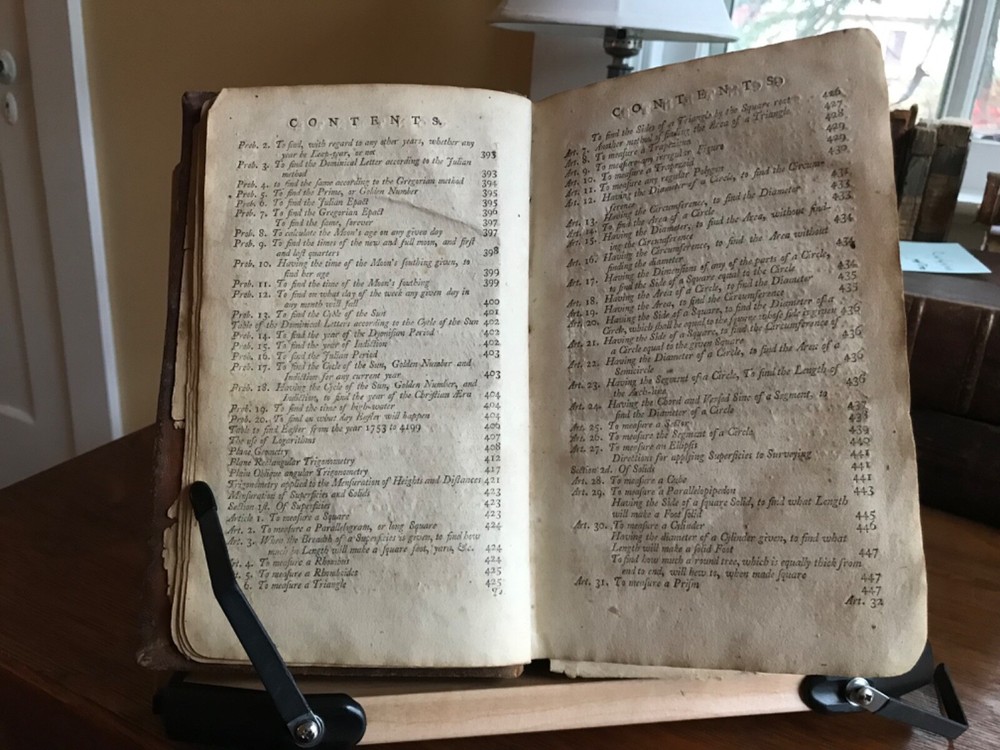 CONTENTS.
Prob. 2. To find, with regard to any other years, whether any
year be Leap-year, or not 393
Prob. 3. To find the Dominical Letter according to the Julian
method 393
Prob. 4. to find the same according to the Gregorian method 394
Prob. 5. To find the Prime, or Golden Number 395
Prob. 6. To find the Julian Epact 395
Prob. 7. To find the Gregorian Epact 396
To find the same, forever 397
Prob. 8. To calculate the Moon's age on any given day 397
Prob. 9. To find the times of the new and full moon, and first
and last quarters 398
Prob. 10. Having the time of the Moon's southing given, to
find her age 399
Prob. 11. To find the time of the Moon's southing 399
Prob. 12. To find on what day of the week any given day in
any month will fall 400
Prob. 13. To find the Cycle of the Sun 401
Table of the Dominical Letters according to the Cycle of the Sun 402
Prob. 14. To find the year of the Dionysian Period 402
Prob. 15. To find the year of Indiction 402
Prob. 16. To find the Julian Period 403
Prob. 17. To find the Cycle of the Sun, Golden Number and
Indiction for any current year 403
Prob. 18. Having the Cycle of the Sun, Golden Number, and
Indiction, to find the year of the Christian Æra 404
Prob. 19. To find the time of high-water 404
Prob. 20. To find on what day Easter will happen 404
Table to find Easter from the year 1753 to 4199 406
The use of Logarithms 407
Plane Geometry 408
Plane Rectangular Trigonometry 412
Plain Oblique angular Trigonometry 417
Trigonometry applied to the Mensuration of Heights and Distances 421
Mensuration of Superficies and Solids 423
Section 1st. Of Superficies 423
Article 1. To measure a Square 423
Art. 2. To measure a Parallelogram, or long Square 424
Art. 3. When the Breadth of a Superficies is given, to find how
much in Length will make a square foot, yard, &c. 424
Art. 4. To measure a Rhombus 424
Art. 5. To measure a Rhomboides 425
6. To measure a Triangle 425
To
CONTENTS.
To find the Sides of a Triangle by the Square root 426
Art. 7. Another method of finding the Area of a Triangle 427
Art. 8. To measure a Trapezium 428
Art. 9. To measure an irregular Figure 429
Art. 10. To measure a Trapezoid 429
Art. 11. To measure any regular Polygon 430
Art. 12. Having the Diameter of a Circle, to find the Circumference
Art. 13. Having the Circumference, to find the Diameter
To find the Area of a Circle
Art. 15. Having the Diameter, to find the Area, without finding
the Circumference 434
Art. 16. Having the Circumference, to find the Area without
finding the diameter 434
Having the Dimensions of any of the parts of a Circle,
Art. 17. to find the Side of a Square equal to the Circle 434
Art. 18. Having the Area of a Circle, to find the Diameter 435
Art. 19. Having the Area, to find the Circumference 435
Art. 20. Having the Side of a Square, to find the Diameter of a
Circle, which shall be equal to the square whose side is given 436
Art. 21. Having the Side of a Square, to find the Circumference of
a Circle equal to the given Square 436
Art. 22. Having the Diameter of a Circle, to find the Area of a
Semicircle 436
Art. 23. Having the Segment of a Circle, To find the Length of
the Arch-line 436
Art. 24. Having the Chord and Versed Sine of a Segment, to
find the Diameter of a Circle 437
Art. 25. To measure a Sector
Art. 26. To measure the Segment of a Circle
Art. 27. To measure an Ellipsis 440
Directions for applying Superficies to Surveying 441
Section 2d. Of Solids 441
Art. 28. To measure a Cube 441
Art. 29. To measure a Parallelopipedon 443
Having the Side of a square Solid, to find what Length
will make a Foot solid 445
Art. 30. To measure a Cylinder 446
Having the diameter of a Cylinder given, to find what
Length will make a solid Foot 447
To find how much a round tree, which is equally thick from
end to end, will hew to, when made square 447
Art. 31. To measure a Prism 447
Art. 32